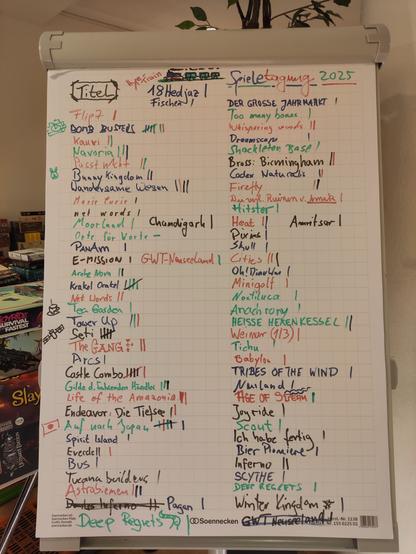 HyperTrain
Spieletagung 2025
Titel
18 Hedjaz |
Fischen |
Flip7 |
BOMB BUSTERS
Kauri ||
Navoria ||
Bunny Kingdom ||
Wundersame Wesen
Marie Curie |
net words |
Moorland | Chandigarh |
Orte für Worte –
PANAM |
E-MISSION | GWT-Neuseeland |
Krakel Orakel
Not Words ||
Tea Garden |
Tower Up
Seti
The GANG
Arcs |
Castle Combo
Gilde d. fahrenden Händler
Life of the Amazonia
Endeavor: Die Tiefsee
Auf nach Japan
Spirit Island |
Everdell |
BUS |
Tucana builders |
Astrobienen
Dantes Inferno Pagan |
Deep Regrets
DER GROSSE JAHRMARKT |
Too many bones |
Whispering woods ||
Dreamscape
Shackleton Base |
Brass: Birmingham ||
Codex Naturalis ||
Firefly
Die verl. Ruinen v. Arnak |
Hitster |
Heat | Amritsar |
Pixies |
Skull |
Cities ||
Minigolf |
Noctiluca |
Anachrony |
HEISSE HEXENKESSEL ||
Weimar (1/3) |
Tichu
Babylon |
TRIBES OF THE WIND |
AGE OF STEAM |
Joyride |
Scout |
Ich habe fertig |
Bier Pioniere |
Inferno ||
SCYTHE |
DEEP REGRETS |
Winter Kingdom
GWT Neuseeland
Soennecken
SURVIVAL
FASTEST
Slay